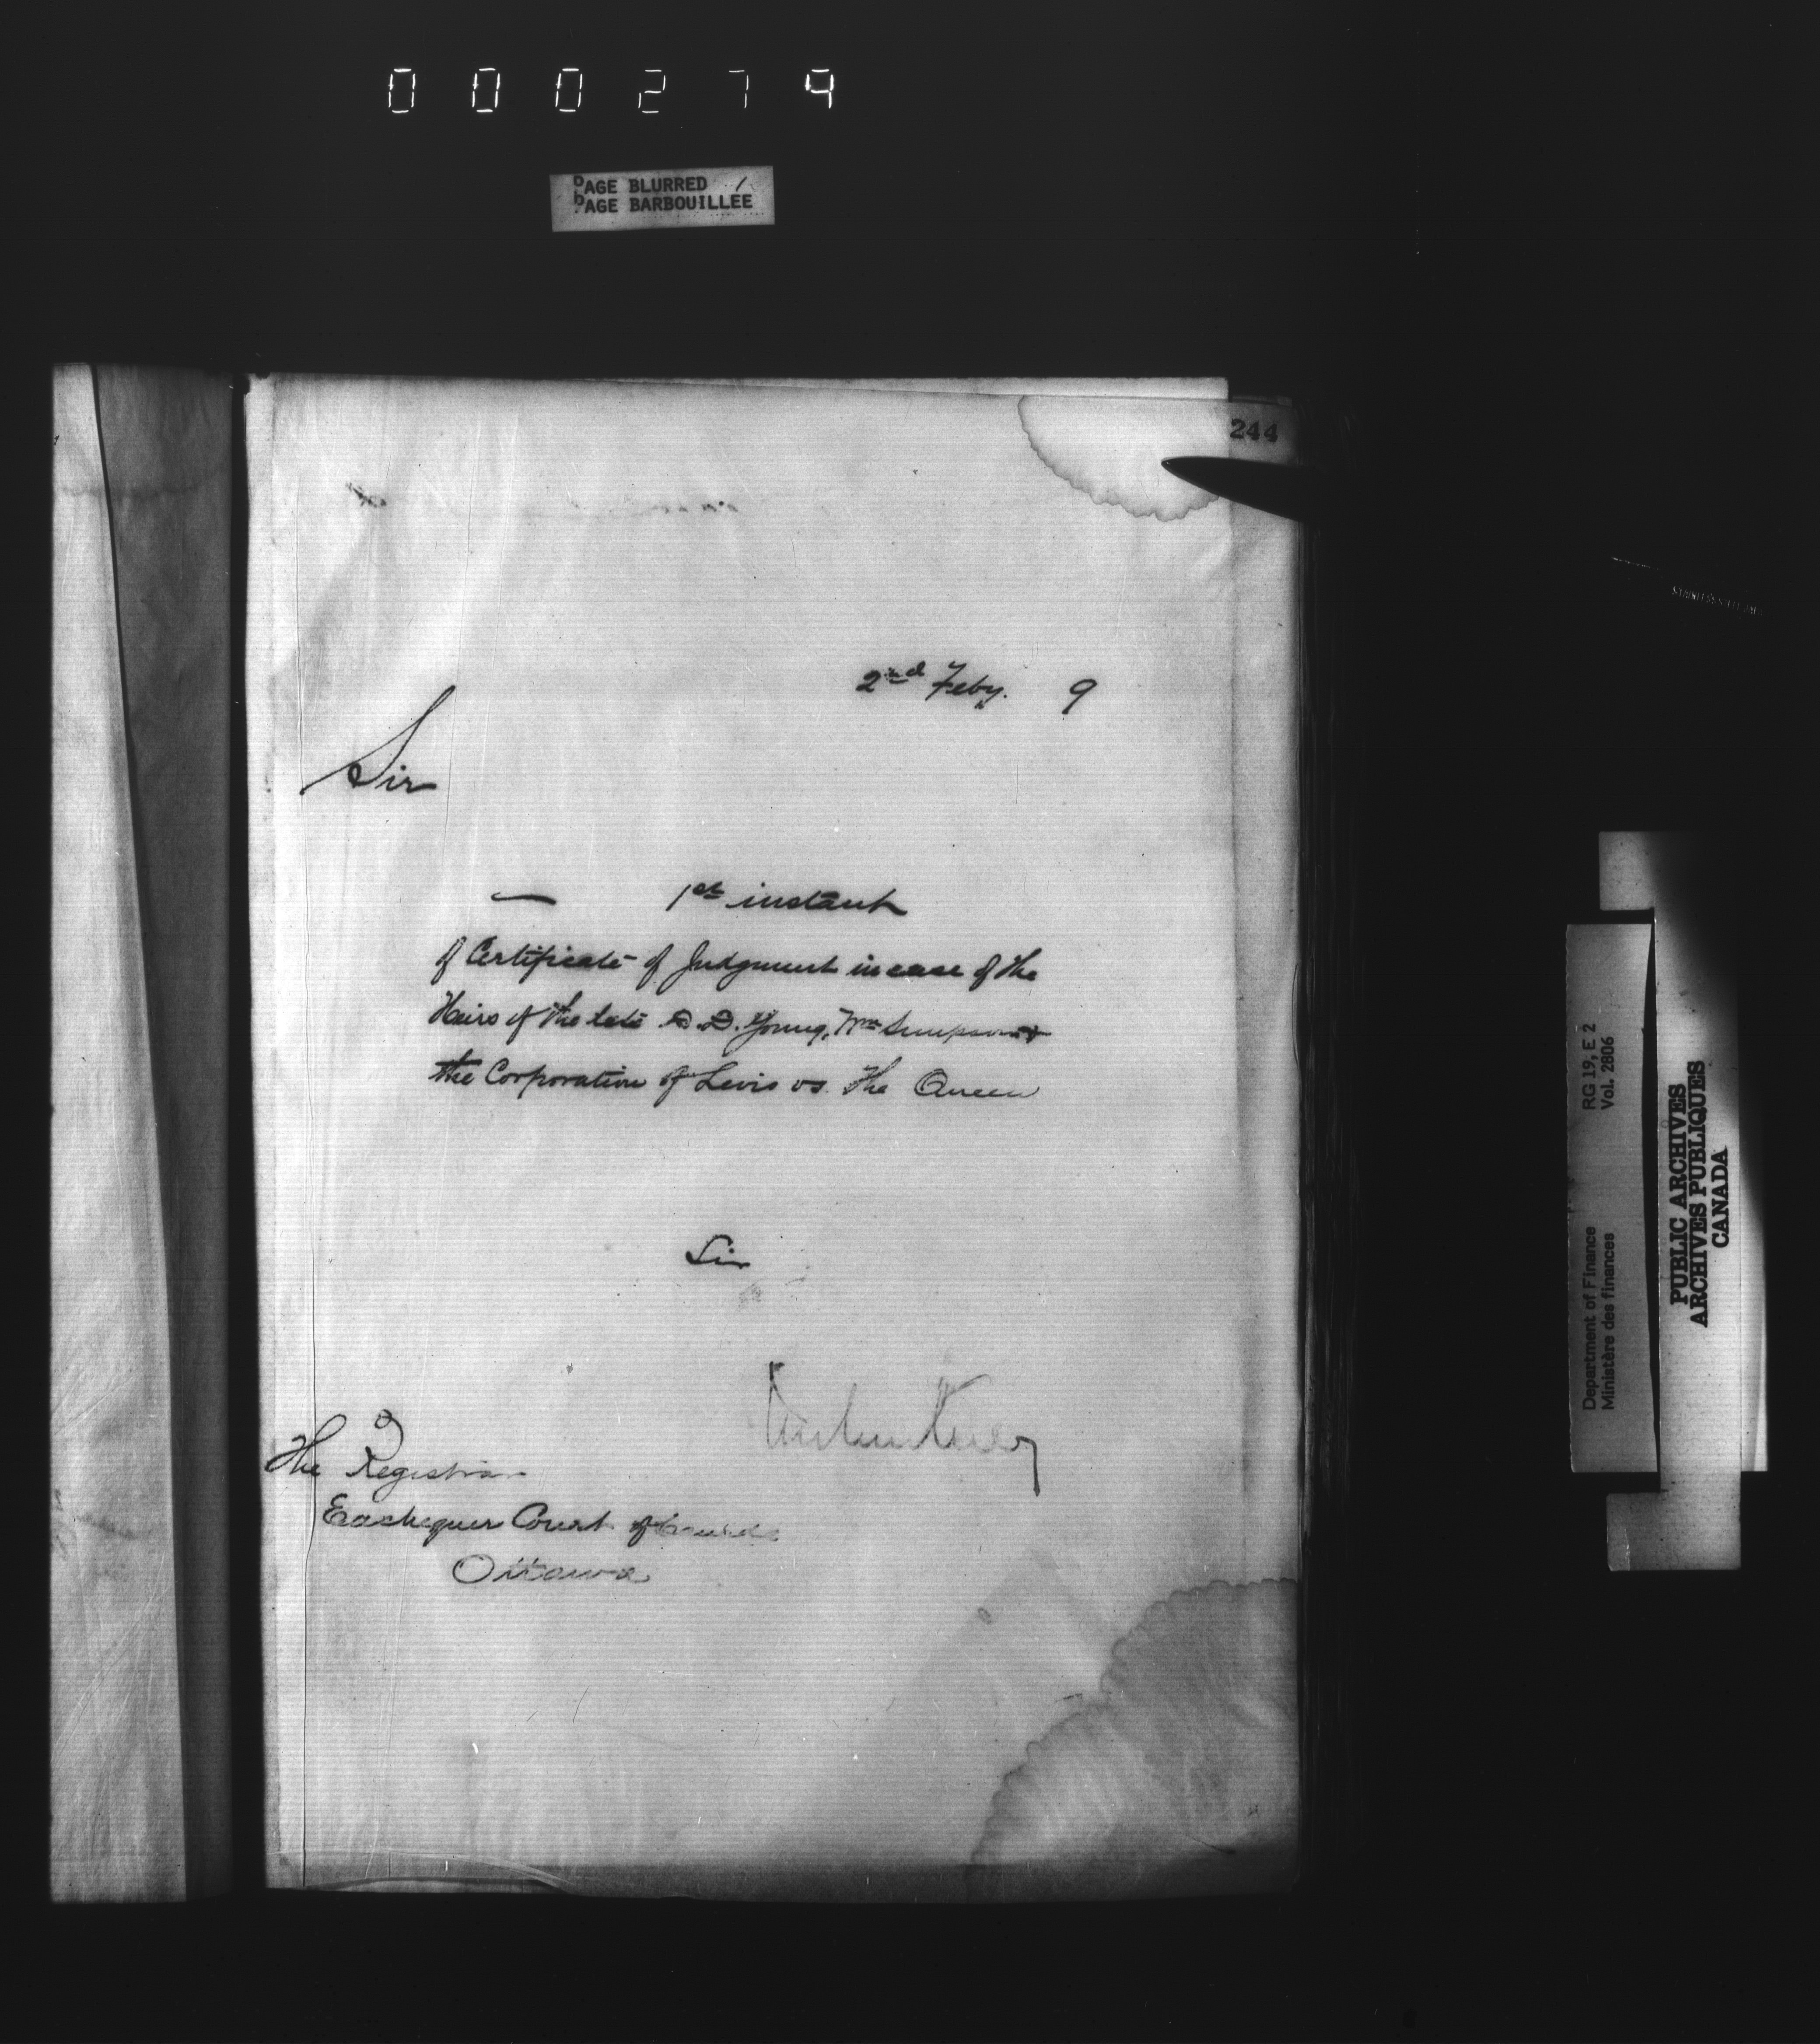 000274
PAGE BLURRED
PAGE BARBOUILLÉE
244
2nd Feby. 9
Sir
— 1st instant
of Certificate of Judgment in case of the
Heirs of the late D. D. Young, Wm Simpson &
the Corporation of Levis vs. The Queen
Sir
The Registrar
Exchequer Court of Canada
Ottawa
Department of Finance RG 19, E 2
Ministère des finances Vol. 2806
PUBLIC ARCHIVES
ARCHIVES PUBLIQUES
CANADA